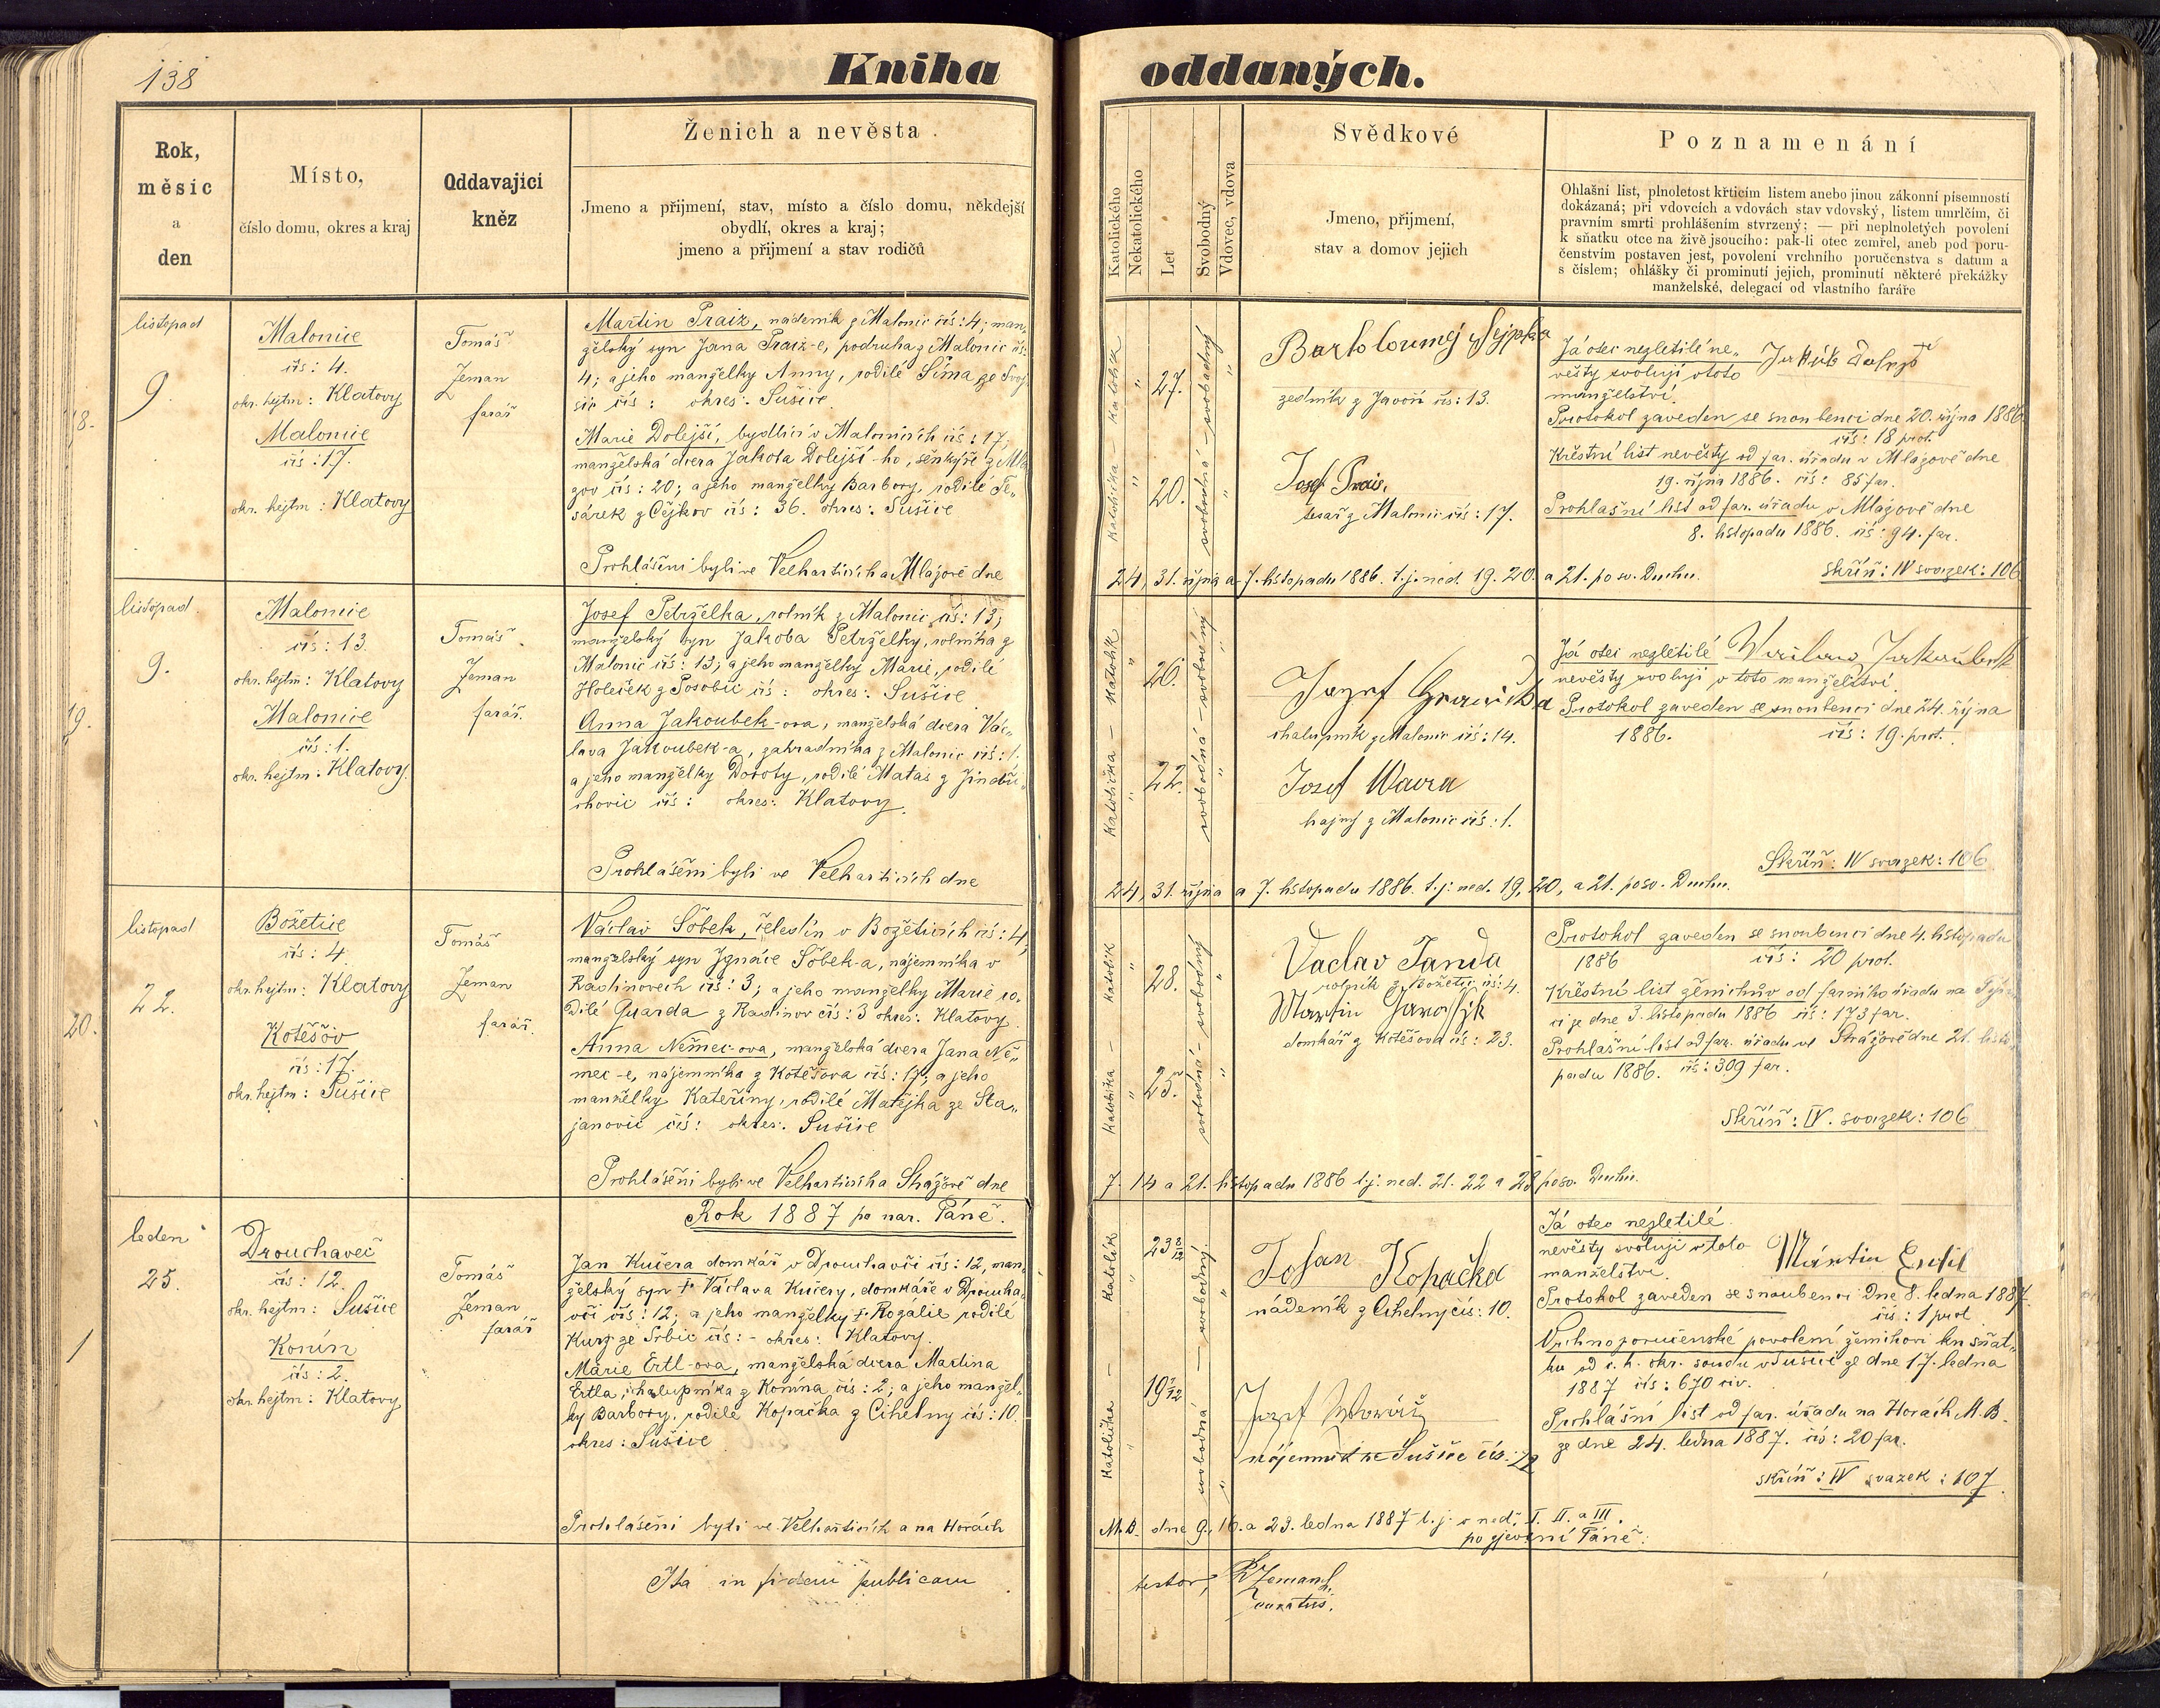 138
Kniha oddaných.
Rok,
měsíc
a
den
Místo,
číslo domu, okres a kraj
Oddavající
kněz
Ženich a nevěsta
Jmeno a přijmení, stav, místo a číslo domu, někdejší
obydlí, okres a kraj;
jmeno a přijmení a stav rodičů
Katolického
Nekatolického
Let
Svobodný
Vdovec, vdova
Svědkové
Jmeno, přijmení,
stav a domov jejich
Poznamenání
Ohlašní list, plnoletost křticím listem anebo jinou zákonní písemností
dokázaná; při vdovcích a vdovách stav vdovský, listem umrlčím, či
pravním smrti prohlášením stvrzený; — při neplnoletých povolení
k sňatku otce na živě jsoucího: pak-li otec zemřel, aneb pod poru-
čenstvím postaven jest, povolení vrchního poručenstva s datum a
s číslem; ohlášky či prominutí jejich, prominutí některé překážky
manželské, delegací od vlastního faráře
18.
listopad
9.
Malonice
čís: 4.
okr. hejtm: Klatovy
Malonice
čís: 17.
okr. hejtm: Klatovy
Tomáš
Zeman
farář
Martin Praiz, nádeník z Malonic čís: 4; man-
želský syn Jana Praiz-e, podruha z Malonic čís:
4; a jeho manželky Anny, rodilé Šíma ze Svoj
šic čís: okres: Sušice
Marie Dolejší, bydlící v Malonicích čís: 17;
manželská dcera Jakoba Dolejší-ho, šenkýře z Mla
zov čís: 20; a jeho manželky Barbory, rodilé Te-
sárek z Čejkov čís: 36. okres: Sušice
Prohlášeni byli ve Velharticích a Mlázově dne
katolička — katolík
27.
20.
svobodná — svobodný
Bartoloumej Sejpka
zedník z Javoří čís: 13.
Josef Prais,
tesař z Malonic čís: 17.
Já otec nezletilé ne-
věsty svoluji v toto
manželství.
Protokol zaveden se snoubenci dne 20. října 1886
čís: 18 prot.
Křestní list nevěsty od far. úřadu v Mlázově dne
19. října 1886. čís: 85 far.
Prohlašní list od far. úřadu v Mlázově dne
8. listopadu 1886. čís: 94. far.
skříň: IV svazek: 106
24, 31. října a 7. listopadu 1886. t.j. ned. 19. 20. a 21. po sv. Duchu.
19.
listopad
9.
Malonice
čís: 13.
okr. hejtm: Klatovy
Malonice
čís: 1.
okr. hejtm: Klatovy
Tomáš
Zeman
farář.
Josef Petrželka, rolník z Malonic čís: 13;
manželský syn Jakoba Petrželky, rolníka z
Malonic čís: 13; a jeho manželky Marie, rodilé
Holeček z Posobic čís: okres: Sušice
Anna Jakoubek-ova, manželská dcera Vác-
lava Jakoubek-a, zahradníka z Malonic čís: 1.
a jeho manželky Doroty, rodilé Matas z Jindři-
chovic čís: okres: Klatovy.
Prohlášeni byli ve Velharticích dne
katolička — katolík
26.
22.
svobodná — svobodný
Jozef
chalupník z Malonic čís: 14.
Josef Wavra
hajný z Malonic čís: 1.
Já otec nezletilé
nevěsty svoluji v toto manželství.
Protokol zaveden se snoubenci dne 24. října
1886. čís: 19. prot.
Skříň: IV svazek: 106
24, 31. října a 7. listopadu 1886. t.j. ned. 19, 20, a 21. po sv. Duchu.
20.
listopad
22.
Božetice
čís: 4
okr. hejtm: Klatovy
Kotěšov
čís: 17.
okr. hejtm: Sušice
Tomáš
Zeman
farář.
Václav Šöbek, čeledín v Božeticích čís: 4,
manželský syn Ignáce Šöbek-a, nájemníka v
Radinovech čís: 3; a jeho manželky Marie ro-
dilé Quarda z Radinov čís: 3 okres: Klatovy.
Anna Němec-ova, manželská dcera Jana Ně-
mec-e, nájemníka z Kotěšova čís: 17; a jeho
manželky Kateřiny, rodilé Matějka ze Sta-
janovic čís: okres: Sušice
Prohlášeni byli ve Velharticích a Strážově dne
katolička — katolík
28.
25.
svobodná — svobodný
Vaclav Janda
rolník z Božetic čís: 4.
Martin
domkář z Kotěšova čís: 23.
Protokol zaveden se snoubenci dne 4. listopadu
1886 čís: 20 prot.
Křestní list ženichův od farního úřadu na
ze dne 3. listopadu 1886 čís: 173 far.
Prohlašní list od far. úřadu ve Strážově dne 21. listo-
padu 1886. čís: 309 far.
Skříň: IV. svazek: 106
7. 14 a 21. listopadu 1886 t.j. ned. 21. 22 a 23 po sv. Duchu.
Rok 1887 po nar. Páně.
1
leden
25.
Drouhaveč
čís: 12.
okr. hejtm: Sušice
Konín
čís: 2.
okr. hejtm: Klatovy
Tomáš
Zeman
farář
Jan Kučera domkář v Drouhavči čís: 12, man-
želský syn † Václava Kučery, domkáře v Drouha-
vči čís: 12; a jeho manželky † Rozálie rodilé
Kurz ze Srbic čís: - okres: Klatovy.
Marie Ertl-ova, manželská dcera Martina
Ertla, chalupníka z Konína čís: 2; a jeho manžel-
ky Barbory, rodilé Kopačka z Cihelny čís: 10.
okres: Sušice
Prohlášeni byli ve Velharticích a na Horách
katolička — katolík
23 8/12
19 7/12
svobodná — svobodný.
Johan Kopačka
nádeník z Cihelny čís: 10.
Jozef
nájemník ze Sušice čís. 72
Já otec nezletilé
nevěsty svoluji v toto
manželství.
Protokol zaveden se snoubenci dne 8. ledna 1887.
čís: 1 prot
Vrchnoporučenské povolení ženichovi ku sňat-
ku od c. k. okr. soudu v Sušici ze dne 17. ledna
1887 čís: 670 civ.
Prohlášní list od far. úřadu na Horách M. B.
ze dne 24. ledna 1887. čís: 20 far.
skříň: IV svazek: 107.
M. B. dne 9., 16. a 23. ledna 1887 t. j. v ned. I. II. a III.
po zjevení Páně.
Ita in fidem publicam
testor, Zeman
curatus.